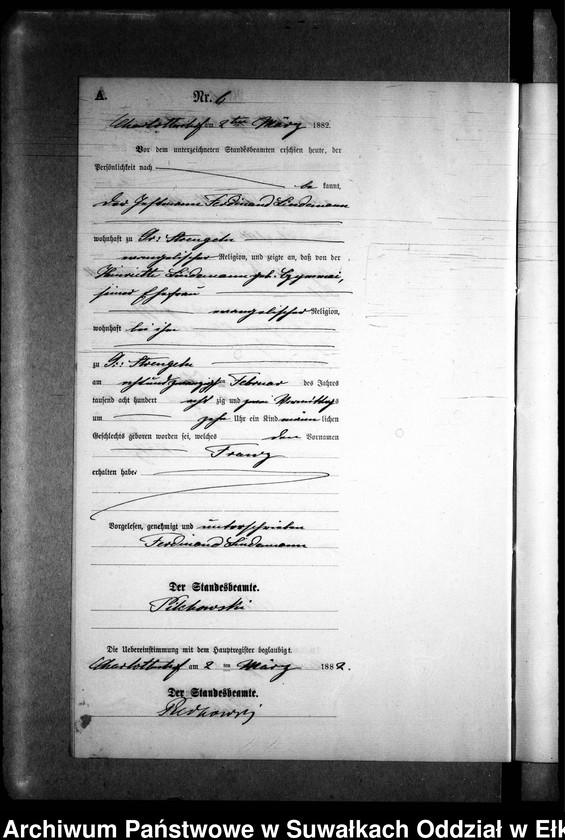 A.
Nr. 6
Charlottenhof am 2ten März 1882.
Vor dem unterzeichneten Standesbeamten erschien heute, der
Persönlichkeit nach
be kannt,
der Ferdinand Lindemann
wohnhaft zu Gr: Strengeln
evangelischer Religion, und zeigte an, daß von der
Henriette Lindemann geb:
seiner Ehefrau
evangelischer Religion,
wohnhaft bei ihm
zu Gr: Strengeln
am achtundzwanzigsten Februar des Jahres
tausend acht hundert acht zig und zwei Vormittags
um zehn Uhr ein Kind männ lichen
Geschlechts geboren worden sei, welches den Vornamen
Franz
erhalten habe
Vorgelesen, genehmigt und unterschrieben
Ferdinand Lindemann
Der Standesbeamte.
Die Uebereinstimmung mit dem Hauptregister beglaubigt.
Charlottenhof am 2 ten März 1882.
Der Standesbeamte.
Archiwum Państwowe w Suwałkach Oddział w Ełk